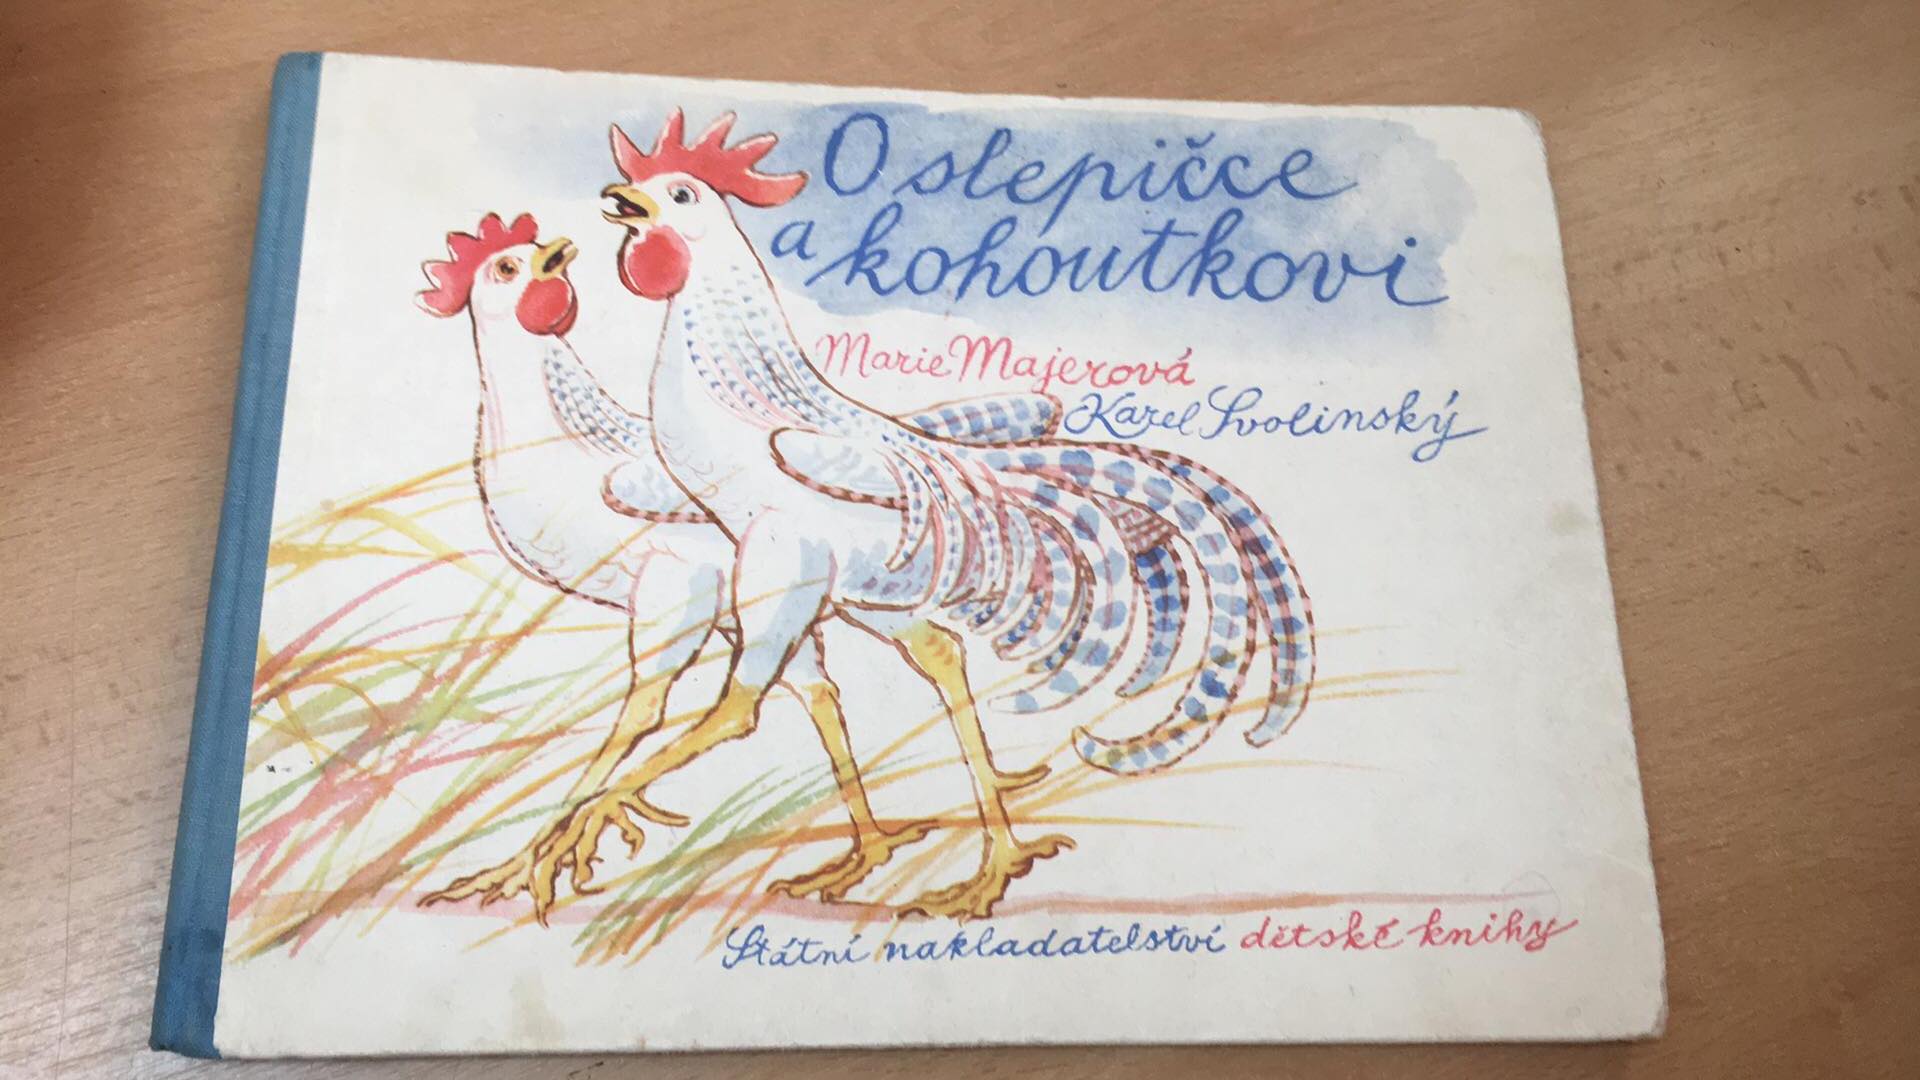 O slepičce
a kohoutkovi
Marie Majerová
Karel Svolinský
Státní nakladatelství dětské knihy